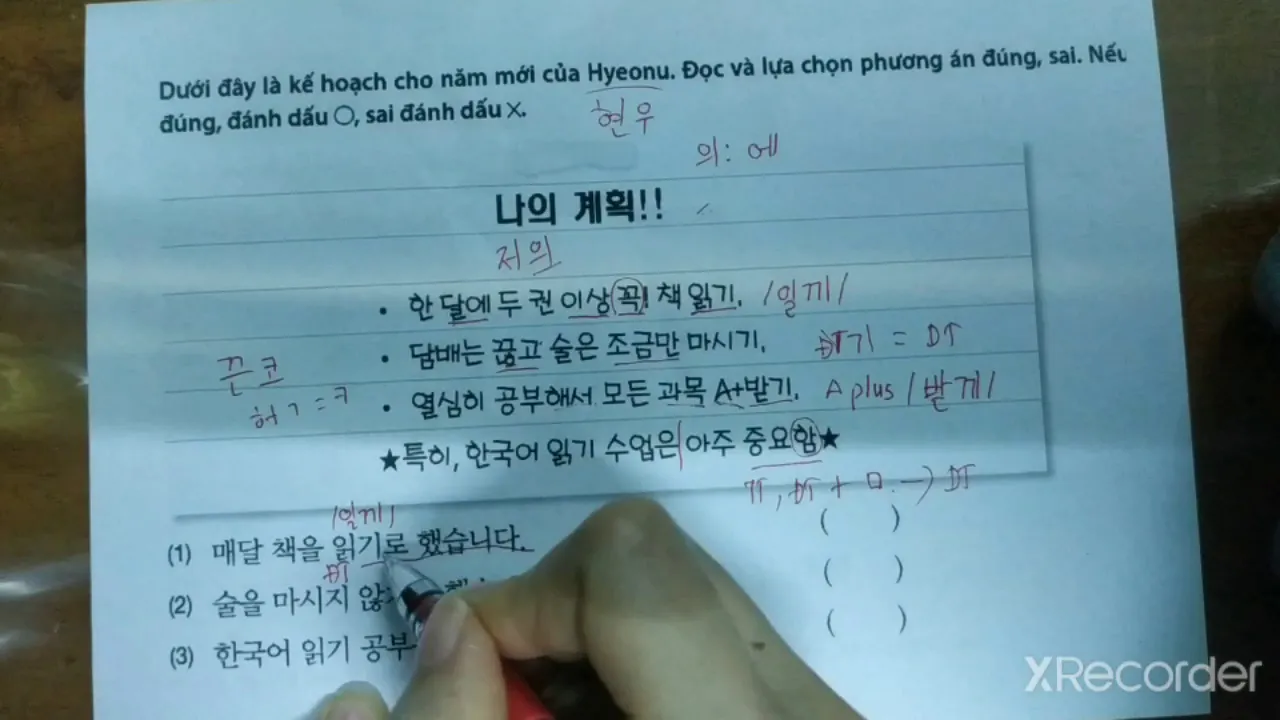 Dưới đây là kế hoạch cho năm mới của Hyeonu. Đọc và lựa chọn phương án đúng, sai. Nếu
đúng, đánh dấu ○, sai đánh dấu ×.
현우
의: 에
나의 계획!!
저의
• 한 달에 두 권 이상 꼭! 책 읽기. /일끼/
끈코 • 담배는 끊고 술은 조금만 마시기. ĐT기 = DT
ㅎ ㄱ = ㅋ • 열심히 공부해서 모든 과목 A+받기. A plus /받게/
★특히, 한국어 읽기 수업은 아주 중요함★
TT, ĐT + ㅁ → DT
/일끼/
(1) 매달 책을 읽기로 했습니다. ( )
ĐT
(2) 술을 마시지 ( )
(3) 한국어 읽기 공부 ( )
XRecorder